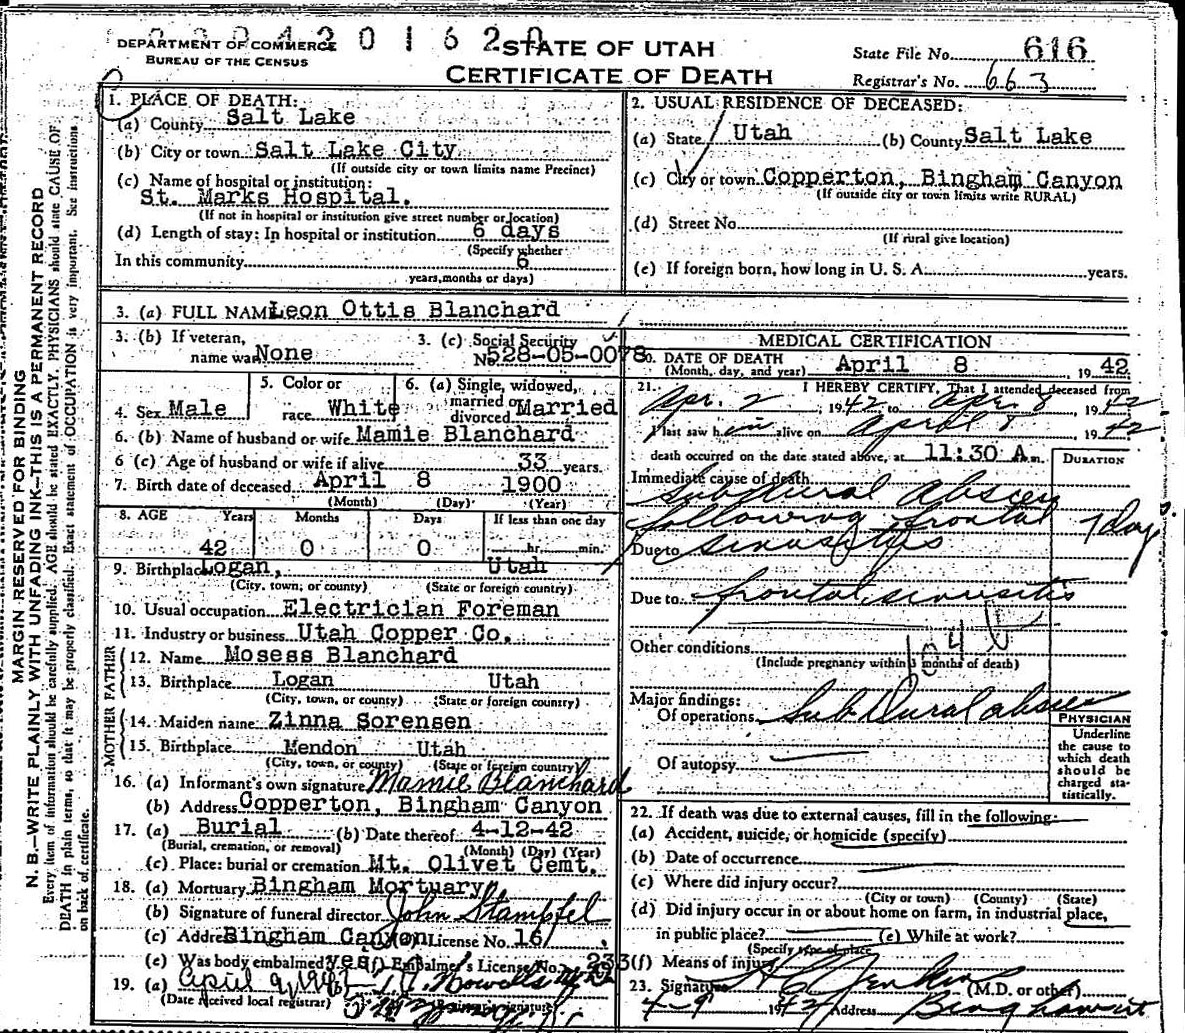 0 0 0 4 2 0 1 6 2 0
STATE OF UTAH
CERTIFICATE OF DEATH
DEPARTMENT OF COMMERCE
BUREAU OF THE CENSUS
State File No. 616
Registrar's No. 663
MARGIN RESERVED FOR BINDING
N. B.—WRITE PLAINLY WITH UNFADING INK—THIS IS A PERMANENT RECORD
Every item of information should be carefully supplied. AGE should be stated EXACTLY. PHYSICIANS should state CAUSE OF
DEATH in plain terms, so that it may be properly classified. Exact statement of OCCUPATION is very important. See instructions
on back of certificate.
1. PLACE OF DEATH:
(a) County Salt Lake
(b) City or town Salt Lake City
(If outside city or town limits name Precinct)
(c) Name of hospital or institution:
St. Marks Hospital.
(If not in hospital or institution give street number or location)
(d) Length of stay: In hospital or institution 6 days
(Specify whether
In this community 6
years, months or days)
2. USUAL RESIDENCE OF DECEASED:
(a) State Utah (b) County Salt Lake
(c) City or town Copperton, Bingham Canyon
(If outside city or town limits write RURAL)
(d) Street No.
(If rural give location)
(e) If foreign born, how long in U. S. A. years.
3. (a) FULL NAME Leon Ottis Blanchard
3. (b) If veteran,
name war None
3. (c) Social Security
No. 528-05-0078
4. Sex Male
5. Color or
race White
6. (a) Single, widowed,
married or
divorced Married
6. (b) Name of husband or wife Mamie Blanchard
6 (c) Age of husband or wife if alive 33 years.
7. Birth date of deceased April 8 1900
(Month) (Day) (Year)
8. AGE Years Months Days If less than one day
42 0 0 hr. min.
9. Birthplace Logan, Utah
(City, town, or county) (State or foreign country)
10. Usual occupation Electrician Foreman
11. Industry or business Utah Copper Co.
FATHER
12. Name Mosess Blanchard
13. Birthplace Logan Utah
(City, town, or county) (State or foreign country)
MOTHER
14. Maiden name Zinna Sorensen
15. Birthplace Mendon Utah
(City, town, or county) (State or foreign country)
16. (a) Informant's own signature Mamie Blanchard
(b) Address Copperton, Bingham Canyon
17. (a) Burial (b) Date thereof 4-12-42
(Burial, cremation, or removal) (Month) (Day) (Year)
(c) Place: burial or cremation Mt. Olivet Cemt.
18. (a) Mortuary Bingham Mortuary
(b) Signature of funeral director John Stampfel
(c) Address Bingham Canyon License No. 16
(e) Was body embalmed yes (f) Embalmer's License No. 233
19. (a) April 9, 1942
(Date received local registrar)
MEDICAL CERTIFICATION
20. DATE OF DEATH April 8, 1942
(Month, day, and year)
21. I HEREBY CERTIFY, That I attended deceased from
Apr. 2, 1942 to Apr 8, 1942
I last saw him alive on April 8, 1942
death occurred on the date stated above, at 11:30 A m.
DURATION
Immediate cause of death
Subdural abscess
following frontal 7 days
Due to sinusitis
Due to frontal sinusitis
104 b
Other conditions
(Include pregnancy within 3 months of death)
Major findings:
Of operations Sub Dural abscess
Of autopsy
PHYSICIAN
Underline
the cause to
which death
should be
charged sta-
tistically.
22. If death was due to external causes, fill in the following:
(a) Accident, suicide, or homicide (specify)
(b) Date of occurrence
(c) Where did injury occur?
(City or town) (County) (State)
(d) Did injury occur in or about home on farm, in industrial place,
in public place? (e) While at work?
(Specify type of place)
(f) Means of injury
23. Signature H C Jenkins (M.D. or other)
4-9 1942 Address Bingham Ut